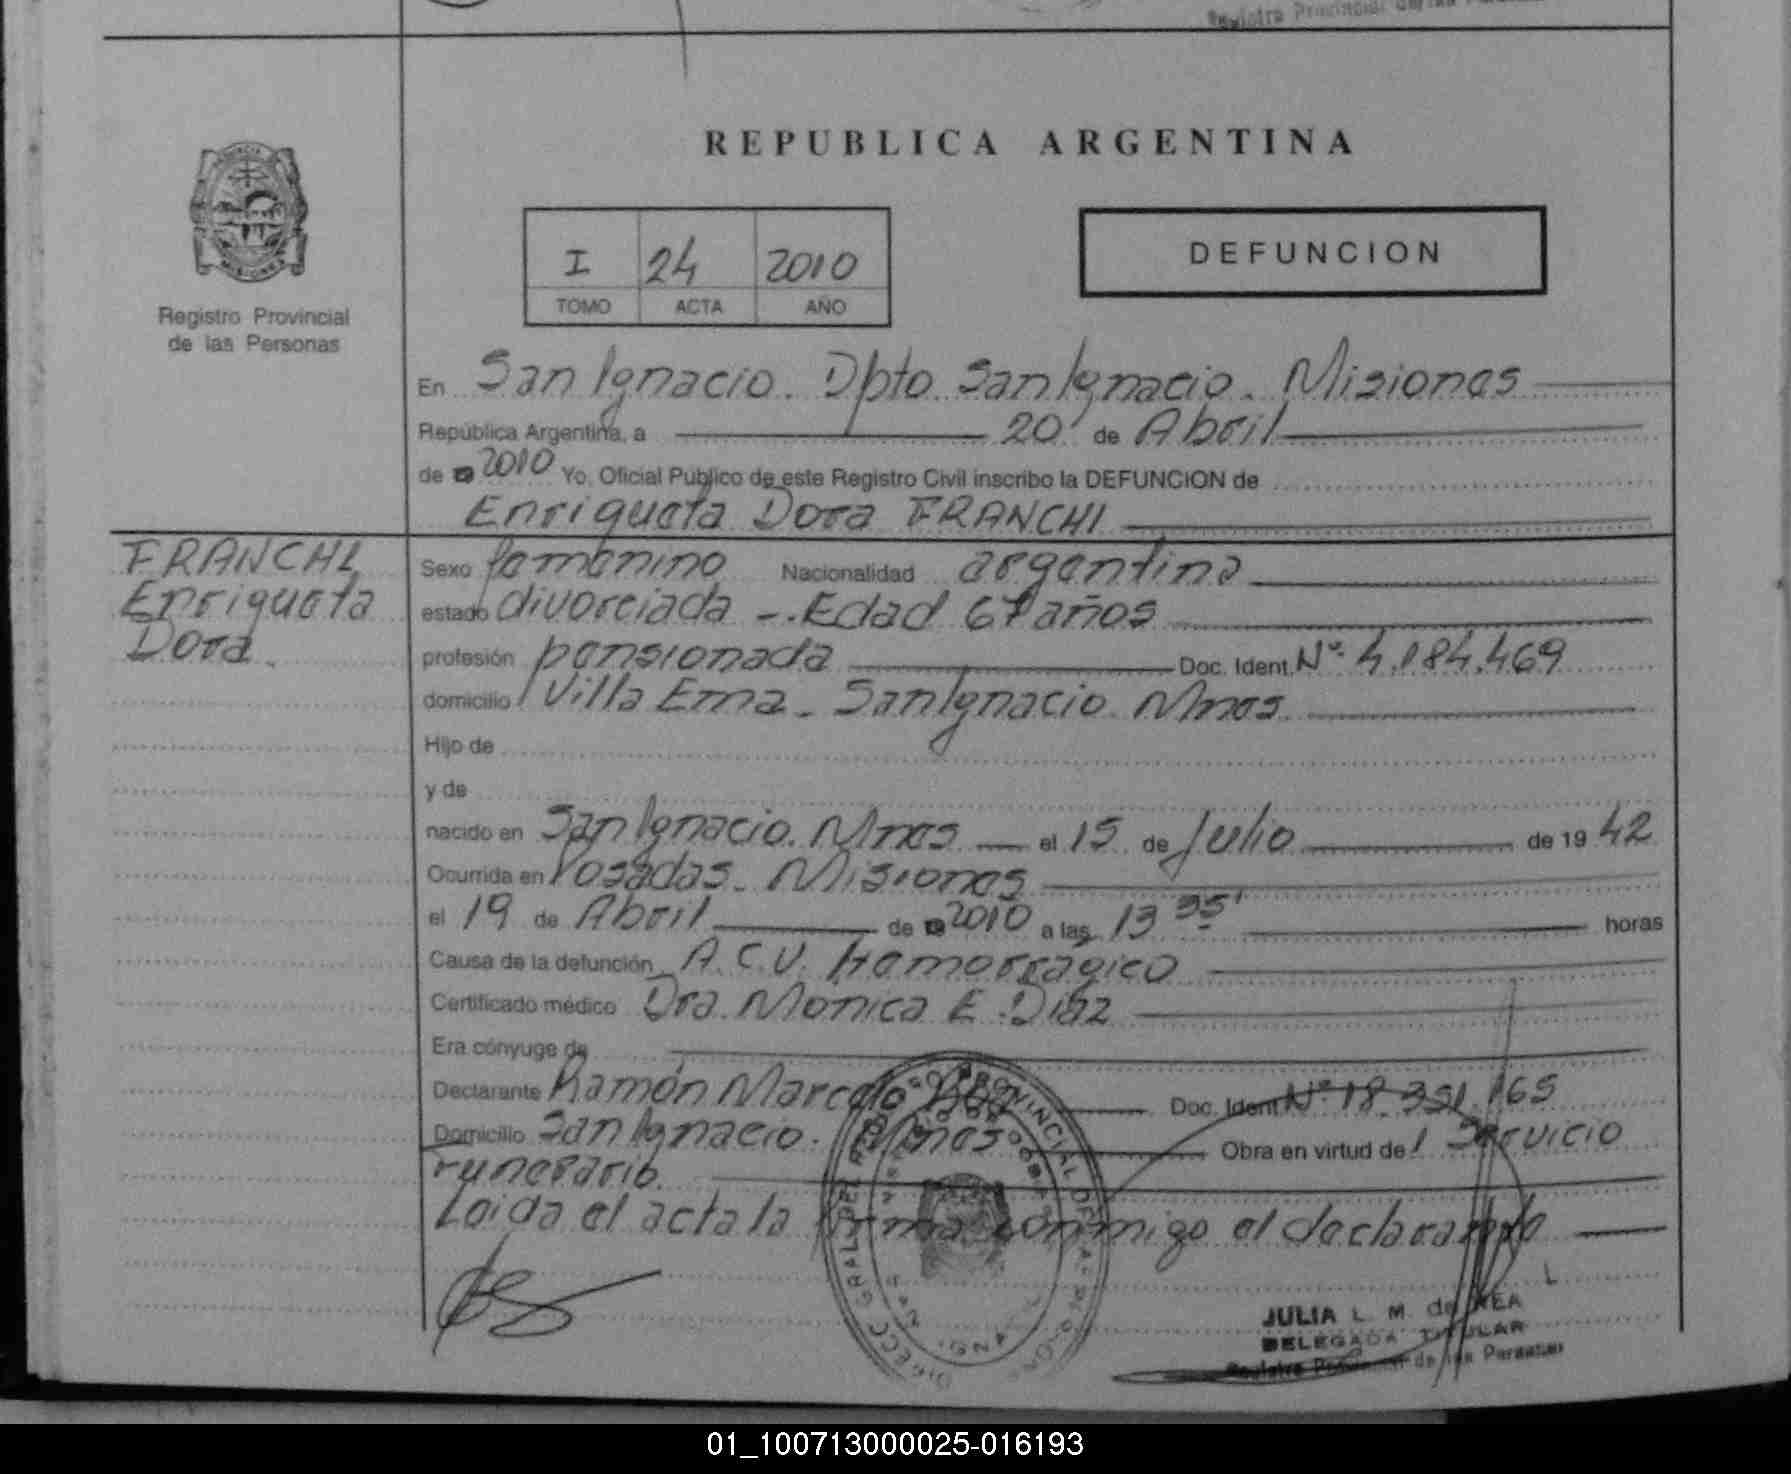 REPUBLICA ARGENTINA
I 24 2010
TOMO ACTA AÑO
DEFUNCION
Registro Provincial
de las Personas
En San Ignacio. Dpto. San Ignacio. Misiones
República Argentina, a 20 de Abril
de 2010 Yo, Oficial Público de este Registro Civil inscribo la DEFUNCION de
Enriqueta Dora FRANCHI
FRANCHI
Enriqueta
Dora.
Sexo femenino Nacionalidad argentina
estado divorciada -. Edad 67 años
profesión pensionada Doc. Ident. Nº 4.184.469
domicilio Villa Ema - San Ignacio. Mnes.
Hijo de
y de
nacido en San Ignacio. Mnes el 15 de Julio de 19 42
Ocurrida en Posadas. Misiones
el 19 de Abril de 2010 a las 13 35' horas
Causa de la defunción A.C.V. Hemorragico
Certificado médico Dra. Monica E. Diaz
Era cónyuge de
Declarante Ramón Marcelo Doc. Ident. Nº 18.351.165
Domicilio San Ignacio. Mnes. Obra en virtud de Servicio
Funerario.
Leida el acta la firma conmigo el declarante
JULIA L. M. de REA
DELEGADA TITULAR
Registro Provincial de las Personas
01_100713000025-016193